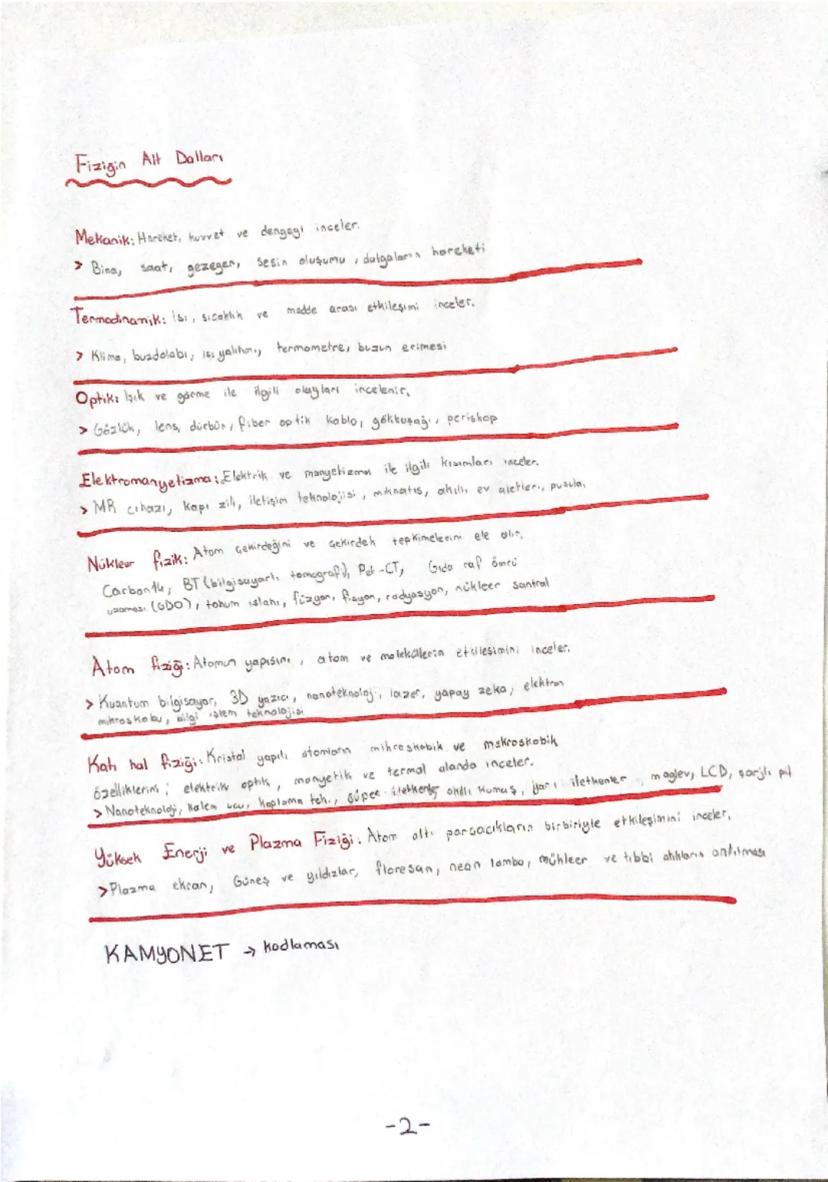 Fiziğin Alt Dalları
Mekanik: Hareket, kuvvet ve dengeyi inceler.
> Bina, saat, gezegen, sesin oluşumu, dalgaların hareketi
Termodinamik: Isı, sıcaklık ve madde arası etkileşimi inceler.
> Klima, buzdolabı, ısı yalıtımı, termometre, buzun erimesi
Optik: Işık ve görme ile ilgili olayları incelenir.
> Gözlük, lens, dürbün, fiber optik kablo, gökkuşağı, periskop
Elektromanyetizma: Elektrik ve manyetizma ile ilgili kısımları inceler.
> MR cihazı, kapı zili, iletişim teknolojisi, mıknatıs, akıllı ev aletleri, pusula,
Nükleer fizik: Atom çekirdeğini ve çekirdek tepkimelerini ele alır.
Carbon14, BT (bilgisayarlı tomografi), Pet-CT, Gıda raf ömrü
uzaması (GDO), tohum ıslahı, füzyon, fisyon, radyasyon, nükleer santral
Atom fiziği: Atomun yapısını, atom ve moleküllerin etkileşimini inceler.
> Kuantum bilgisayar, 3D yazıcı, nanoteknoloji, lazer, yapay zeka, elektron
mikroskobu, bilgi işlem teknolojisi
Katı hal fiziği: Kristal yapılı atomların mikroskobik ve makroskobik
özelliklerini; elektrik optik, manyetik ve termal alanda inceler.
> Nanoteknoloji, kalem ucu, kaplama tek., süper iletkenler akıllı kumaş, yarı iletkenler, maglev, LCD, şarjlı pil
Yüksek Enerji ve Plazma Fiziği: Atom altı parçacıkların birbiriyle etkileşimini inceler.
> Plazma ekran, Güneş ve yıldızlar, floresan, neon lamba, nükleer ve tıbbi atıkların arıtılması
KAMYONET → kodlaması
-2-